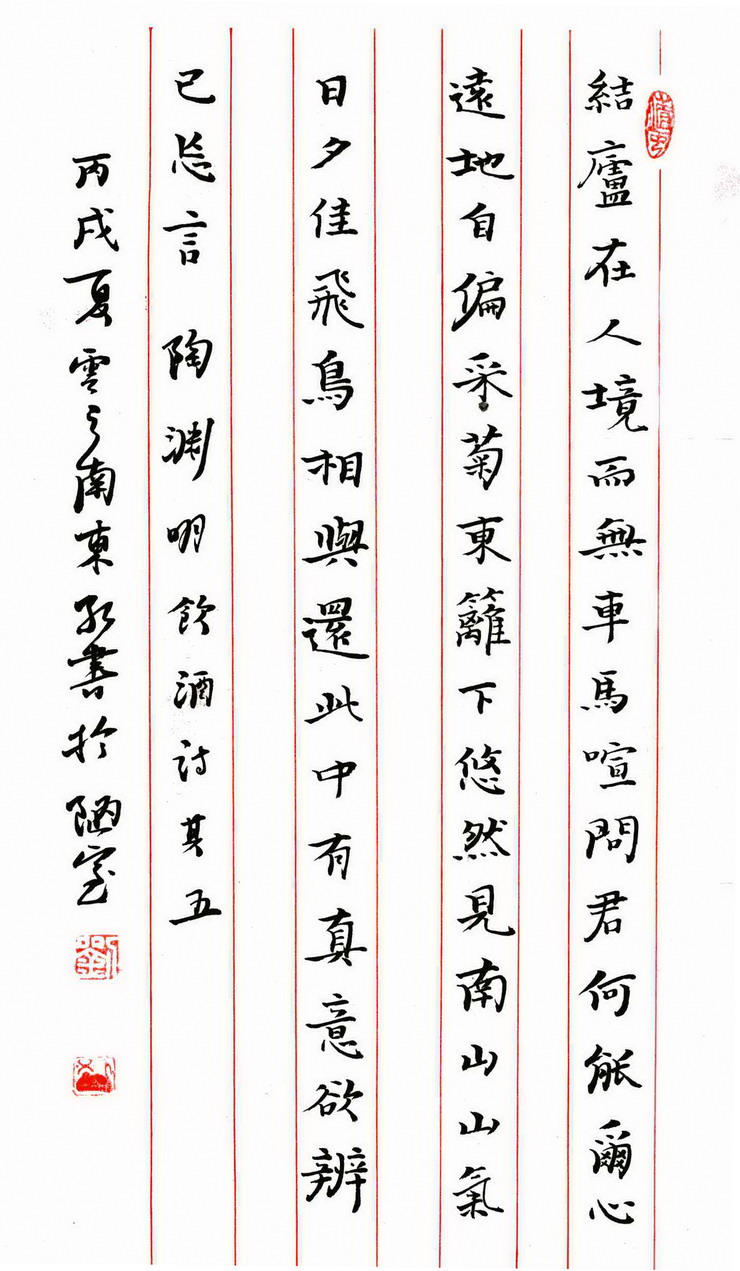 結廬在人境而無車馬喧問君何能爾心
遠地自偏采菊東籬下悠然見南山山氣
日夕佳飛鳥相與還此中有真意欲辨
已忘言 陶淵明飲酒詩其五
丙戌夏雲之南東 書於陋室